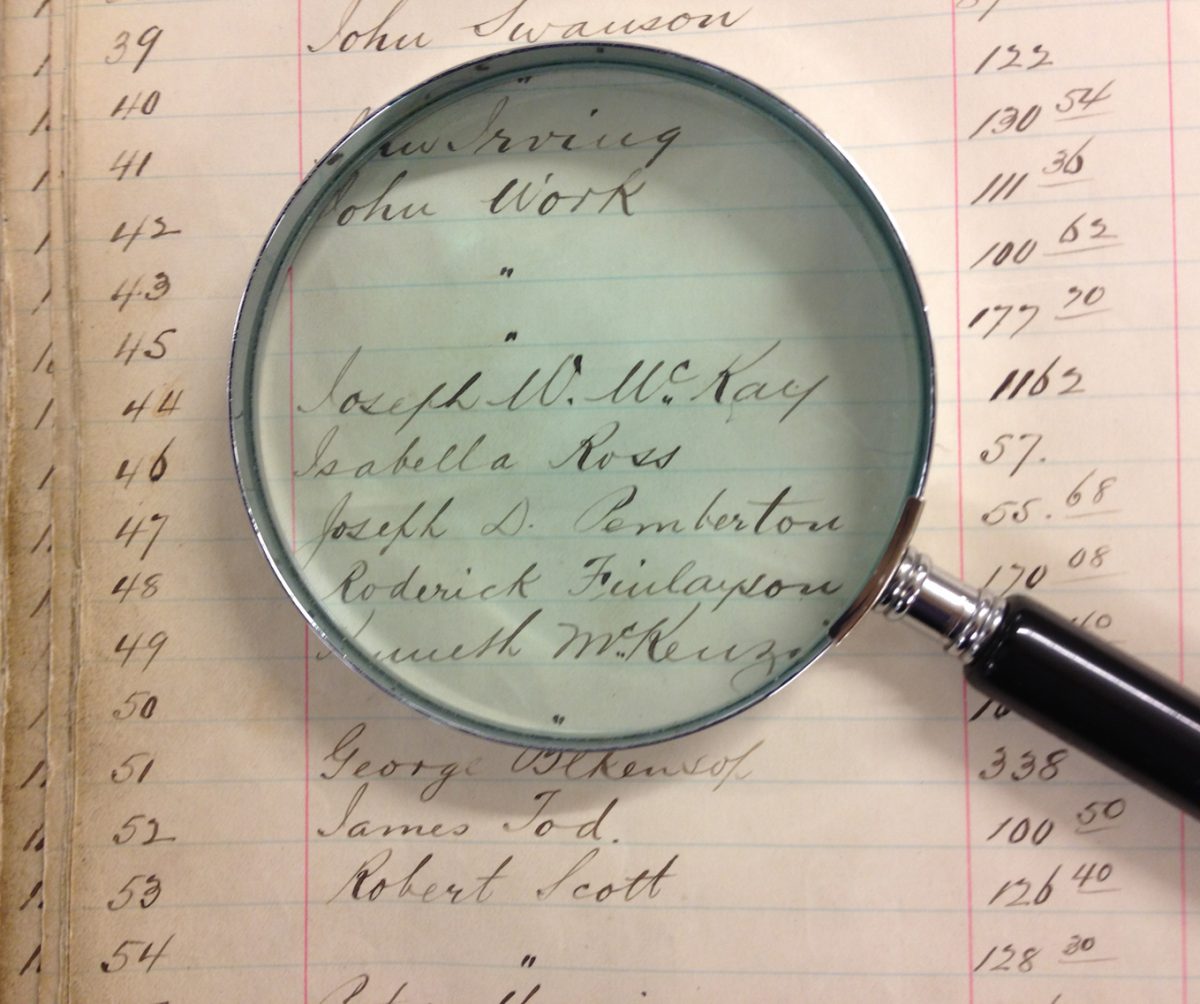 39 John Swanson 122
40 " 130 54
41 Irving 111 36
42 John Work 100 62
43 " 177 70
45 " 1162
44 Joseph W. McKay 57.
46 Isabella Ross 55. 68
47 Joseph D. Pemberton 170 08
48 Roderick Finlayson 40
49 Kenneth McKenzi
50 "
51 George 338
52 James Tod. 100 50
53 Robert Scott 126 40
54 " 128 30